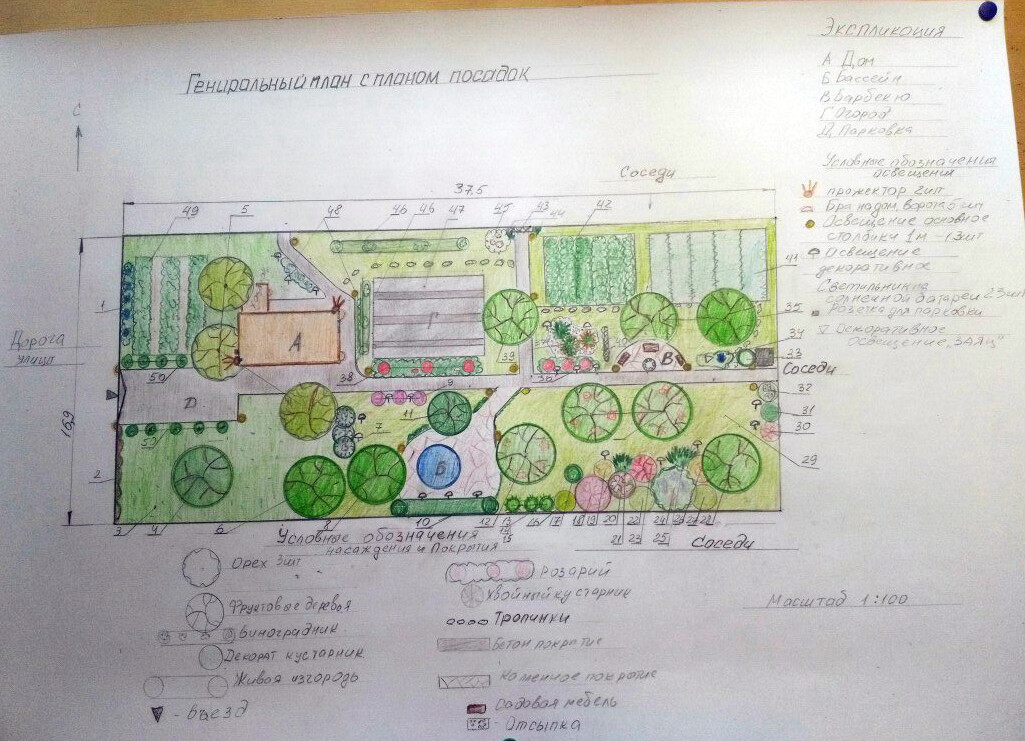 Экспликация
А Дом
Б Бассейн
В Барбекю
Г Огород
Д Парковка
Условные обозначения
освещения
прожектор 2шт
Бра над вороте 5 шт
Освещение основное
столбики 1м -13шт
Освещение
декоративное
Светильник на
солнечной батареи 23шт
Розетка для парковки
Декоративное
освещение "ЗАЯЦ"
Гениральный план с планом посадок
С
Соседи
37.5
49 5 48 46 46 47 45 43 44 42
1
41
35
Дорога
улица
А
Г
В
34
33
39
Соседи
50 38 9 36
32
Д
31
11
30
16,9
50 7
Б
29
2
3 4 6 8 10 12 13 14 15 16 17 18 19 20 21 22 23 24 25 26 27 28
Условные обозначения
насаждения и покрытия
Соседи
Орех 3шт
Розарий
Хвойный кустарник
Фруктовые деревья
Тропинки
Масштаб 1:100
Виноградник
Бетон покрытие
Декорат кустарник
Живая изгородь
Каменное покрытие
- Въезд
Садовая мебель
- Отсыпка